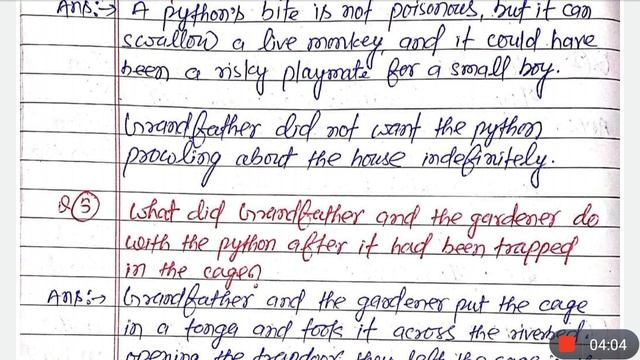 Ans:→ A python's bite is not poisonous, but it can
swallow a live monkey, and it could have
been a risky playmate for a small boy.
Grandfather did not want the python
prowling about the house indefinitely.
Q(5) What did Grandfather and the gardener do
with the python after it had been trapped
in the cage?
Ans:→ Grandfather and the gardener put the cage
in a tonga and took it across the riverbed.
opening the trapdoor, they left the cage
04:04